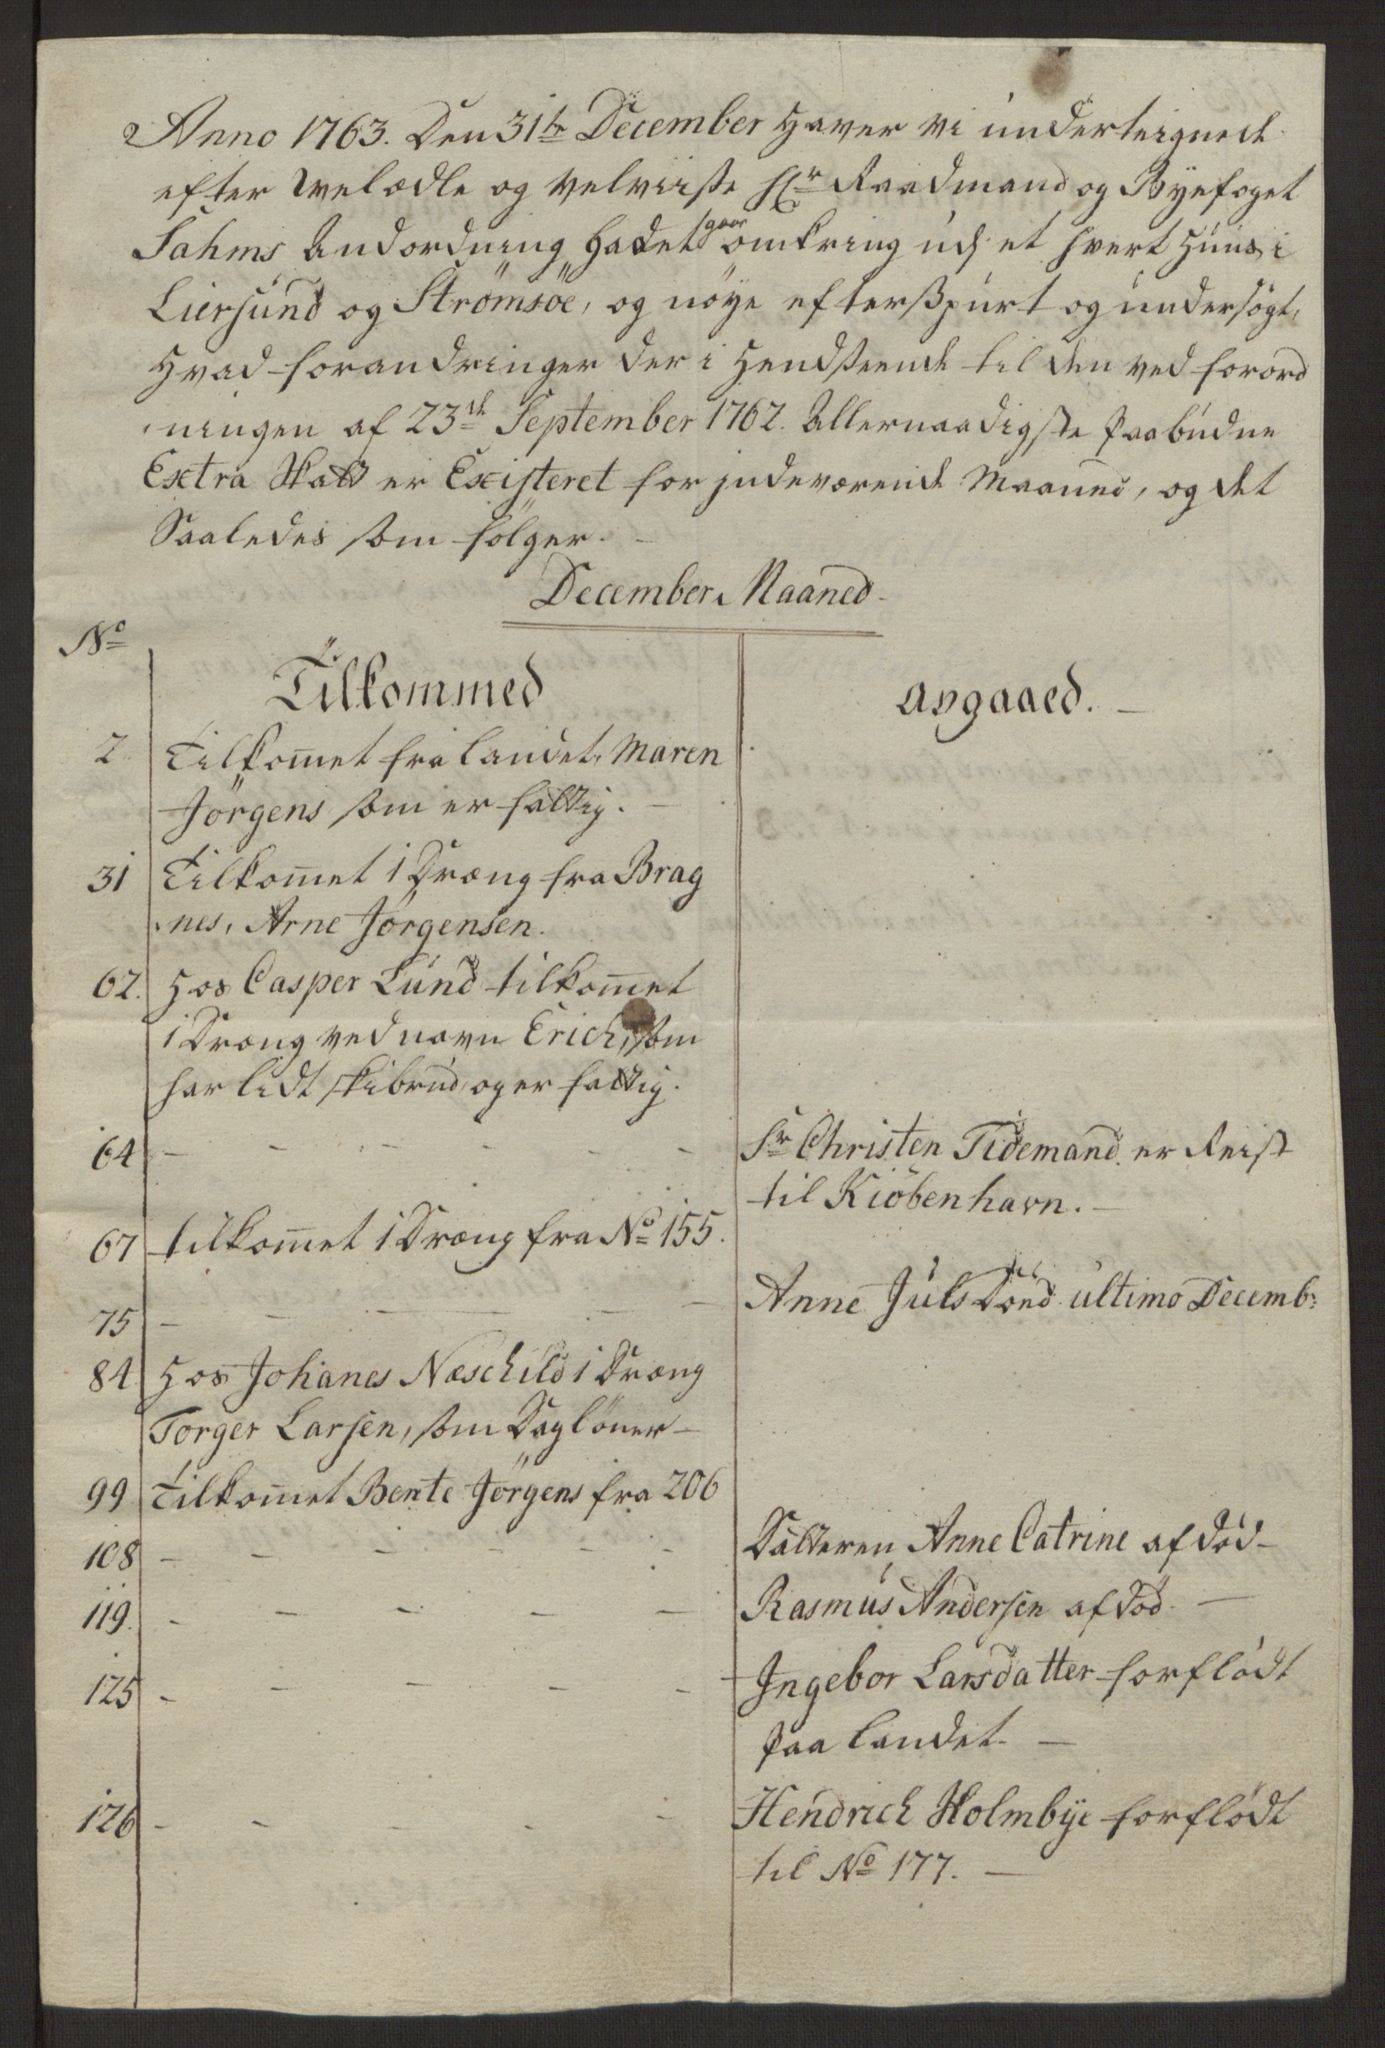 Anno 1763. Den 31te December Haver vi underteignede
efter Welædle og Velviise Hr Raadmand og Byefoget
Sahms Andordning Hadet gaar omkring udj et hvert Huus i
Liersund og Strömsöe, og nöye efterspurt og undersögt,
Hvad forandringer der i Hendseende til den ved forord
ningen af 23de September 1762. Allernaadigste Paabudne
Extra Skatt er Existeret for indeværende Maaned, og det
Saaledes som fölger.
December Maaned
No
Tilkommed
Avgaaed.
2 Tilkom̅et fra landet, Maren
Jörgens som er fattig.
31 Tilkom̅et 1 Dræng fra Brag
nes, Arne Jörgensen.
62. Hos Casper Lund tilkom̅et
1 Dræng ved navn Erich, som
har lidt skibrud og er fattig.
64 - - - - - - Sr Christen Tidemand er Reist
til Kiöbenhavn.
67 tilkom̅et 1 Dræng fra No 155.
75 - - - - - Anne Juls Död ultimo Decemb:
84 Hos Johanes Næschild 1 Dræng
Torger Larsen, som Daglöner
99 Tilkom̅et Bente Jörgens fra 206
108 - - - - - - Datteren Anne Catrine afdöd
119. - - - - - Rasmus Andersen afdöd.
125 - - - - - Ingebor Larsdatter forflödt
paa landet.
126 - - - - - Hendrich Holmbye forflödt
til No 177.